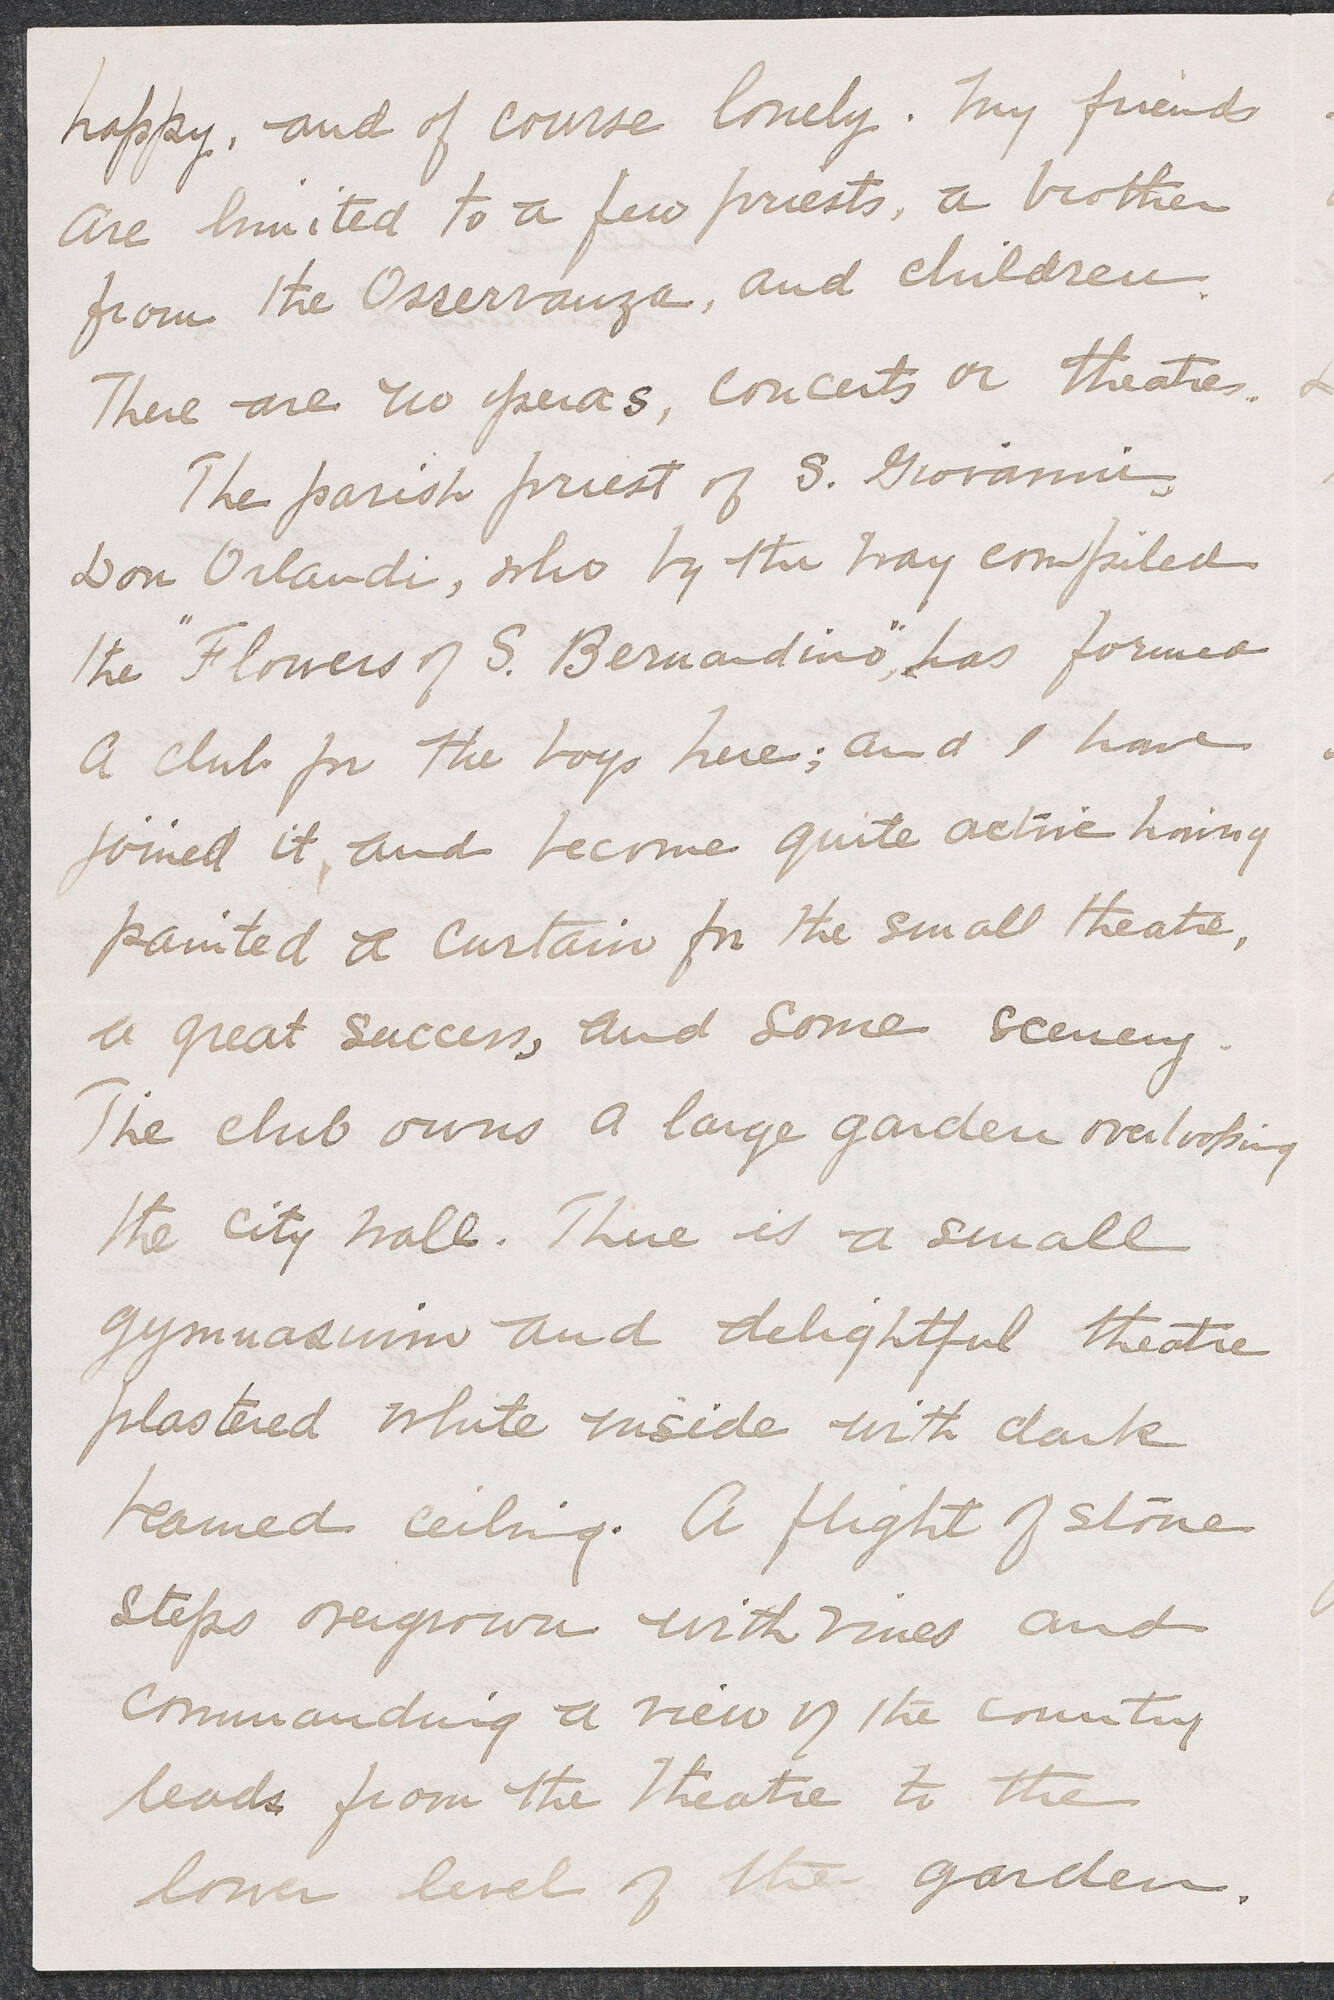 happy, and of course lonely. My friends
are limited to a few priests, a brother
from the Osservanza, and children.
There are no operas, concerts or theatres.
The parish priest of S. Giovanni,
Don Orlandi, who by the way compiled
the "Flowers of S. Bernardino", has formed
a club for the boys here; and I have
joined it, and become quite active having
painted a curtain for the small theatre,
a great success, and some scenery.
The club owns a large garden overlooking
the city wall. There is a small
gymnasium and delightful theatre
plastered white inside with dark
beamed ceiling. A flight of stone
steps overgrown with vines and
commanding a view of the country
leads from the theatre to the
lower level of the garden.